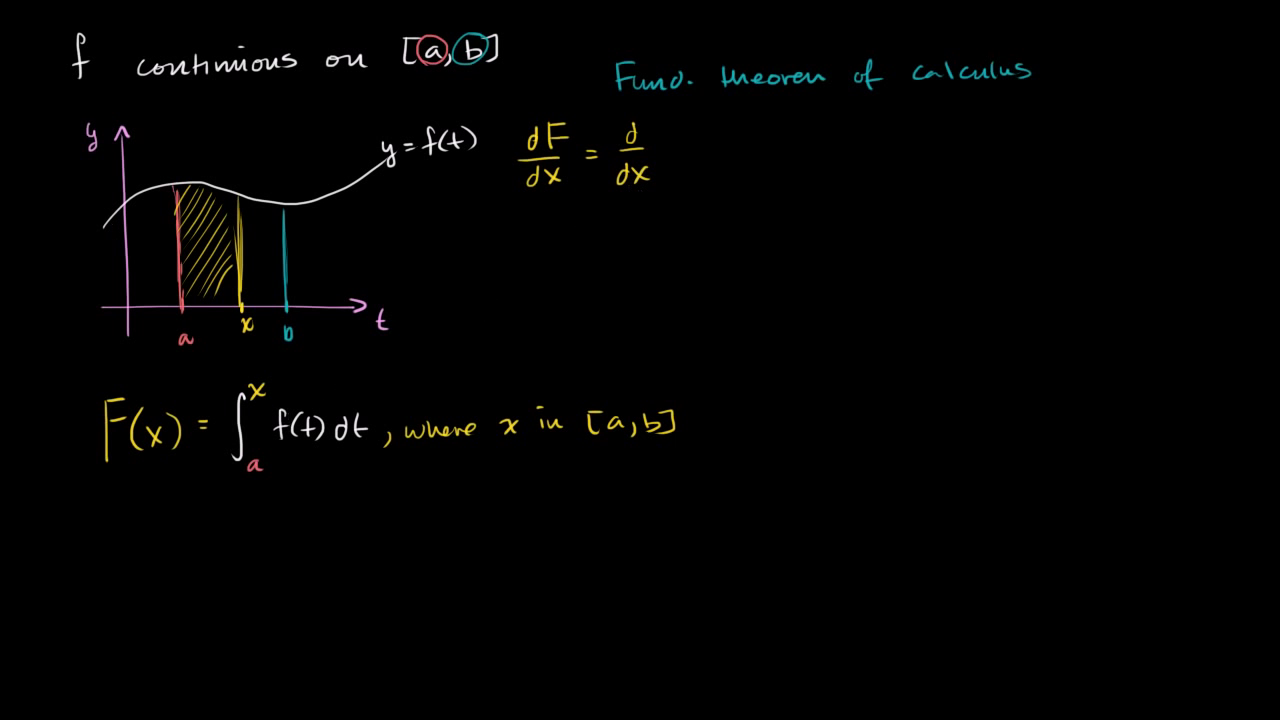 f continuous on [a, b]
Fund. theorem of calculus
y
y = f(t)
dF/dx = d/dx
a
x
b
t
F(x) = ∫ₐˣ f(t) dt, where x in [a, b]